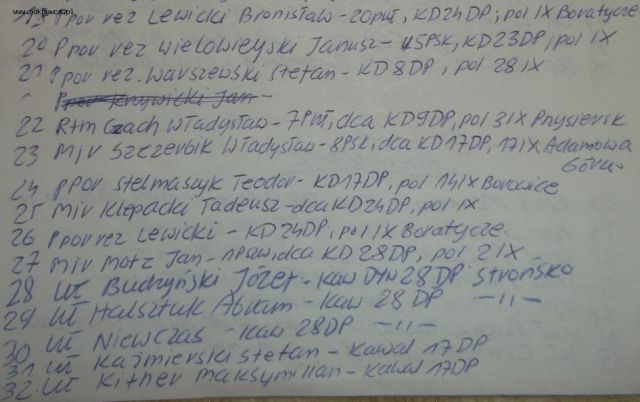 19 Ppor rez Lewicki Bronisław - 20puł, KD24DP, pol IX Boratycze
20 Ppor rez Wielowieyski Janusz - 4SPSK, KD23DP, pol IX
21 Ppor rez. Warszewski Stefan - KD8DP, pol 28 IX
Ppor Knywicki Jan -
22 Rtm Czach Władysław - 7Puł, dca KD9DP, pol 3 IX Przysiersk
23 Mjr Szczerbik Władysław - 8PSK, dca KD17DP, 17 IX Adamowa
Góra
24 PPor Stelmaszyk Teodor - KD17DP, pol 14 IX Borowice
25 Mjr Kłopacki Tadeusz - dca KD24DP, pol IX
26 Ppor rez Lewicki - KD24DP, pol IX Boratycze.
27 Mjr Motz Jan - 1PSZW, dca KD28DP, pol 2 IX
28 Uł Budzyński Józef - kaw DYW 28DP Strońsko
29 Uł Halsztuk Abram - kaw 28 DP -11-
30 Uł Niewczas - kaw 28DP -11-
31 Uł Kaźmierski Stefan - kawal 17DP
32. Uł Kither Maksymilian - kawal 17DP